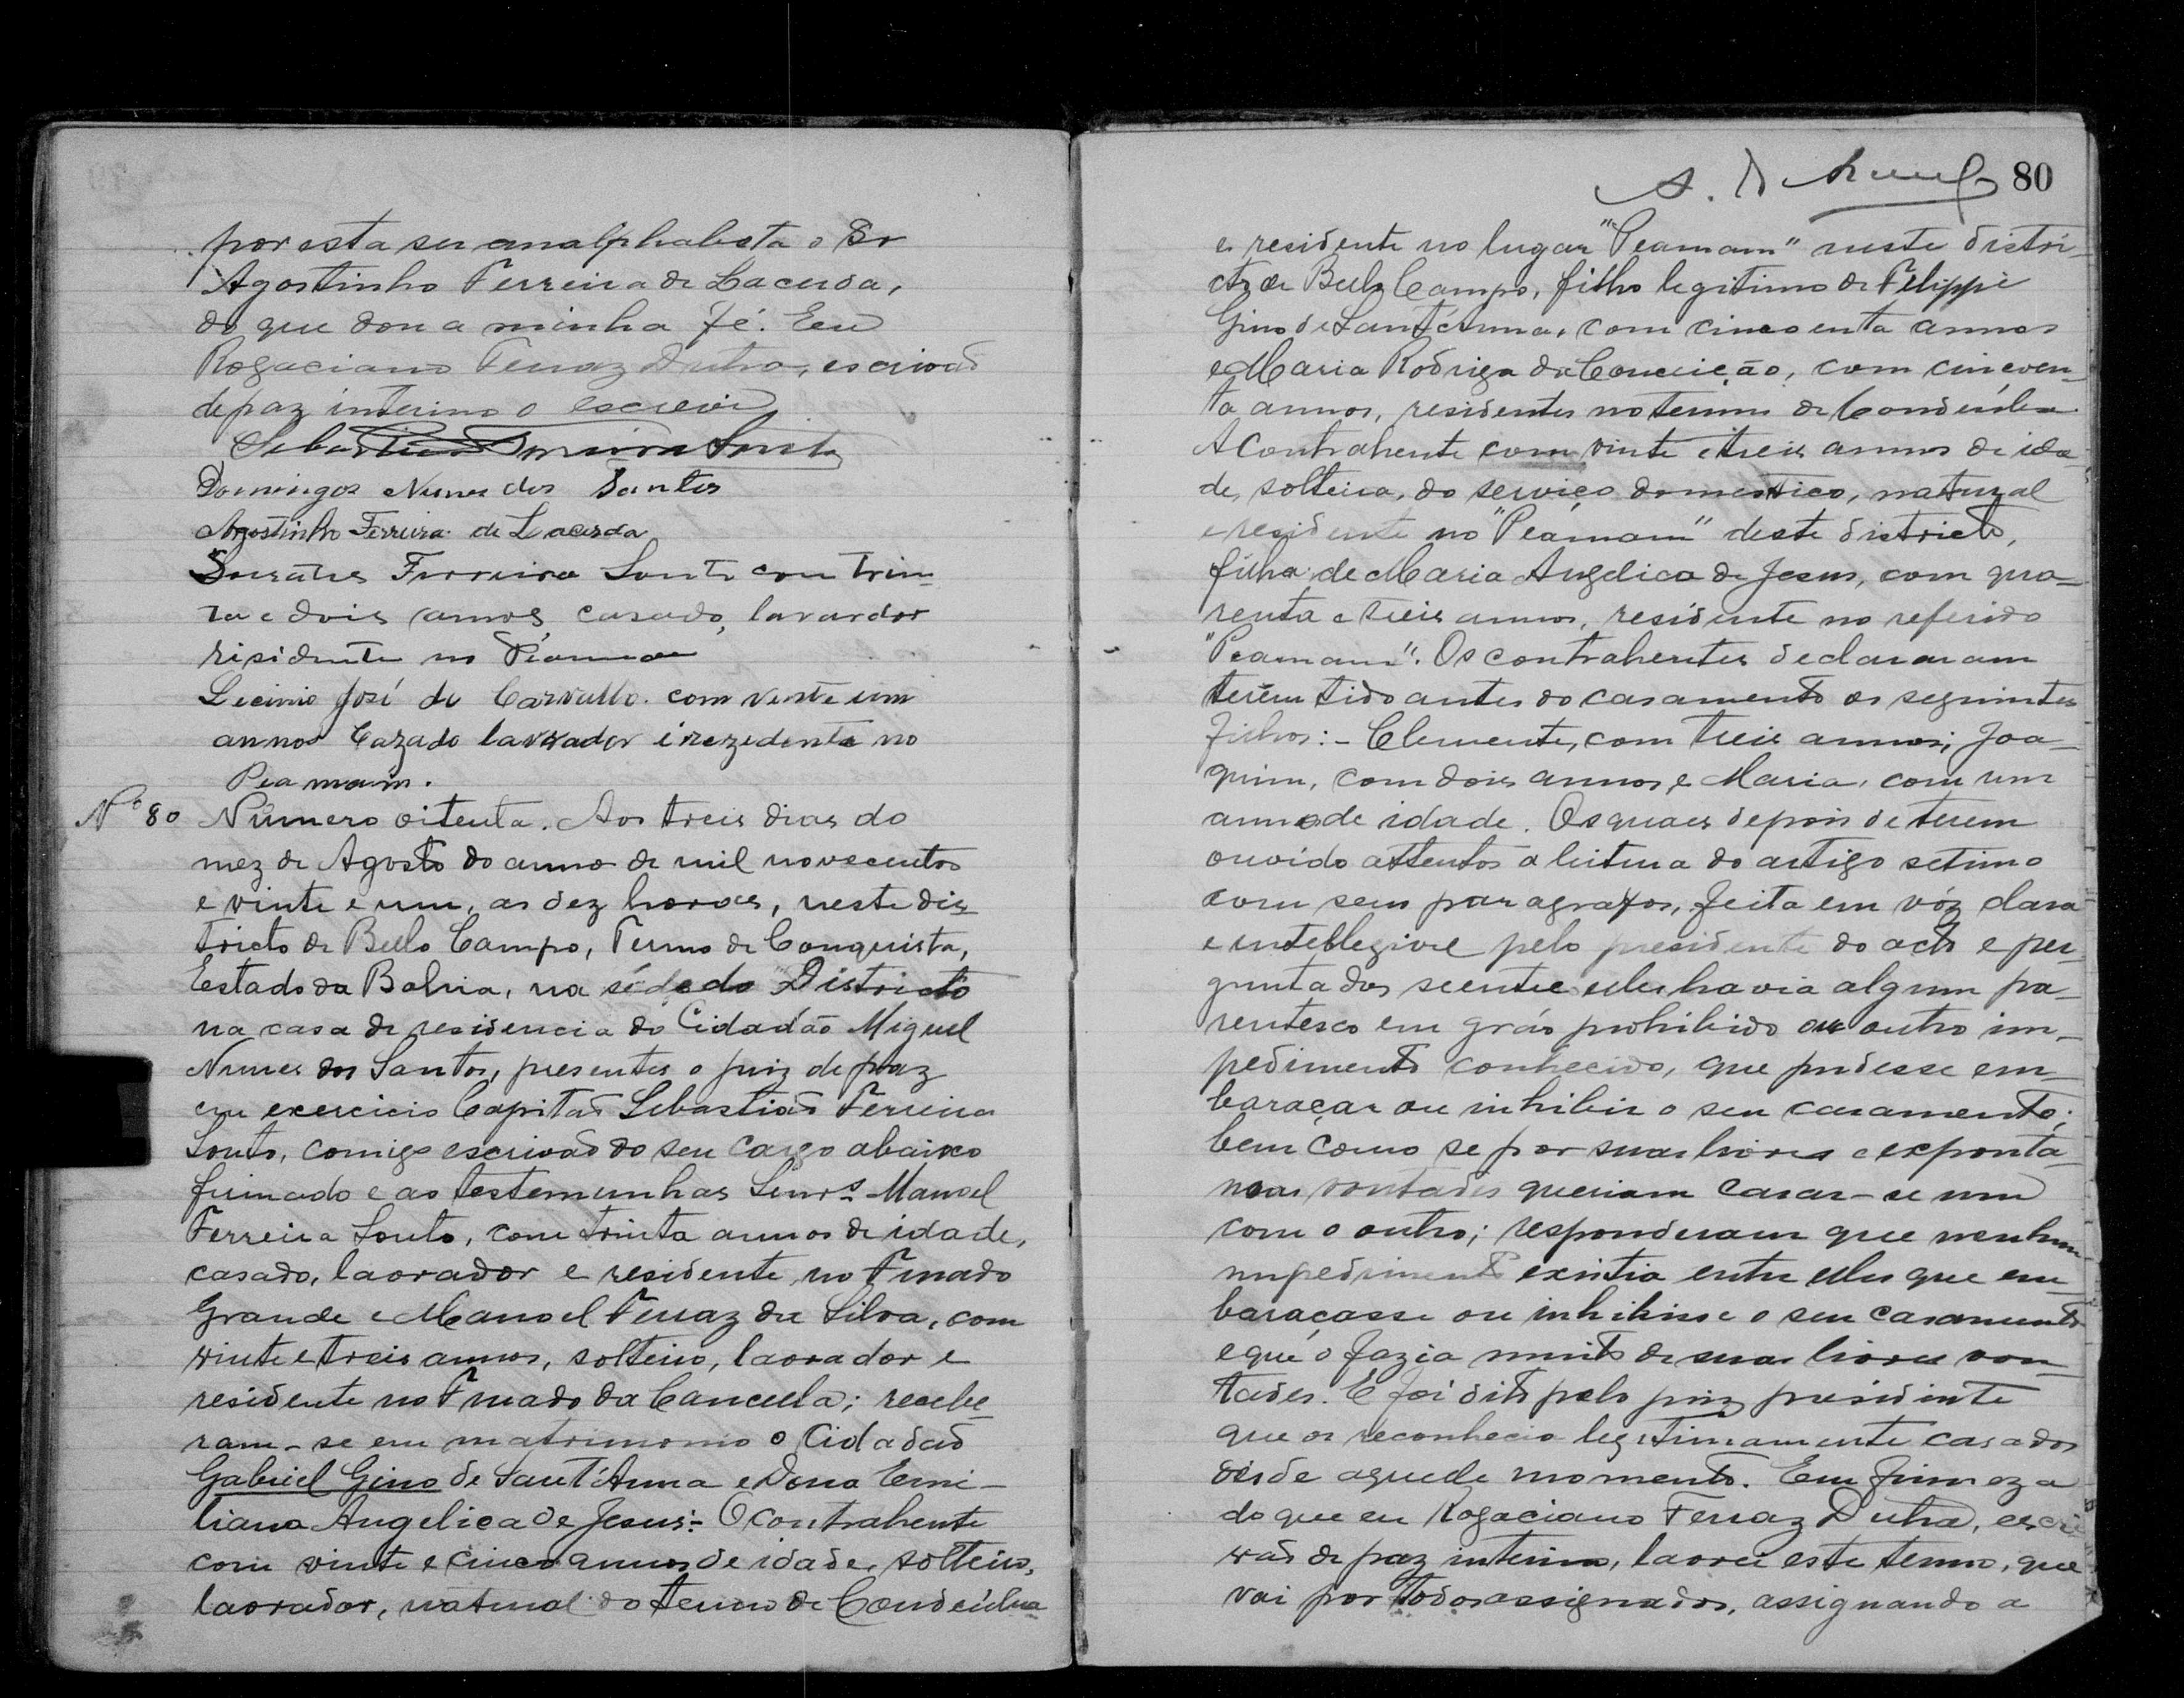 por esta ser analphabeta o Sr
Agostinho Ferreira de Lacerda,
do que dou a minha fé. Eeu
Rogaciano Ferraz Dutra, escrivão
de paz interino o escrevi
Sebastião Ferreira Souto
Domingos Nunes dos Santos
Agostinho Ferreira de Lacerda
Socrates Ferreira Souto con trin
ta e dois annos, casado, lavardor
risidente no
Lecinio José de Carvalho. com vente um
annos Cazado lavrador i rezedente no
Peamam.
Nº 80 Número oitenta. Aos treis dias do
mez de Agosto do anno de mil novecentos
e vinte e um, as dez horas, neste dis
tricto de Bello Campo, Termo de Conquista,
Estado da Bahia, na séde do Districto
na casa de residencia do Cidadão Miguel
Nunes dos Santos, presentes o juiz de paz
em exercicio Capitão Sebastião Ferreira
Souto, comigo escrivão do seu cargo abaixo
firmado e as testemunhas Senrs. Manoel
Ferreira Souto, com trinta annos de idade,
casado, lavrador e residente, no Furado
Grande e Manoel Ferraz da Silva, com
vinte e treis annos, solteiro, lavrador e
residente no Furado da Cancella; recebe
ram-se em matrimonio o Cidadão
Gabriel Gino de Sant'Anna e Dona Emi-
liana Angelica de Jesus:- O contrahente
com vinte e cinco annos de idade, solteiro,
lavrador, natural do termo de Condeúba
80
e residente no lugar "Peamam" neste distri-
cto de Bello Campo, filho legitimo de Filippe
Gino de Sant'Anna, com cincoenta annos
e Maria Rodriga da Conceição, com cincoen-
ta annos, residentes no termo de Condeúba
A Contrahente com vinte e treis annos de ida-
de, solteira, do serviço domestico, natural
e residente no "Peamam" deste districto,
filha de Maria Angelica de Jesus, com qua-
renta e treis annos, residente no referido
"Peamam". Os contrahentes declararam
terem tido antes do casamento os seguintes
filhos:- Clemente, com treis annos; Joa-
quim, com dois annos e Maria, com um
anno de idade. Os quaes depois de terem
ouvido attentos a leitura do artigo setimo
com seus paragrafos, feita em vóz clara
e intellegivel pelo presidente do acto e per-
guntados se entre elles havia algum pa-
rentesco em gráo prohibido ou outro im-
pedimento conhecido, que pudesse em-
baraçar ou inhibir o seu casamento;
bem como se por suas livres e exponta-
neas vontades queriam casar-se um
com o outro; responderam que nenhum
impedimento existia entre elles que em-
baraçasse ou inhibisse o seu casamento
e que o fazia muito de suas livres von-
tades. E foi dito pelo juiz presidente
que os reconhecia legitimamente casados
desde aquelle momento. Em firmeza
do que eu Rogaciano Ferraz Dutra, escri
vão de paz interino, lavrei este termo, que
vai por todos assignados, assignando a